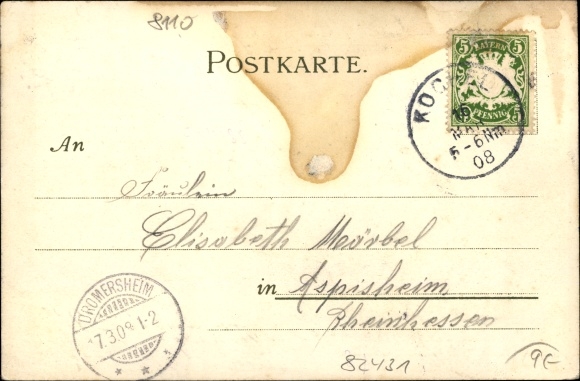 8110
POSTKARTE.
5 BAYERN 5
PFENNIG
5 - 6 NM
08
An
Fräulein
Elisabeth Märbel
in Aspisheim
Rheinhessen
DROMERSHEIM
7.3.08 1-2
82431
9€